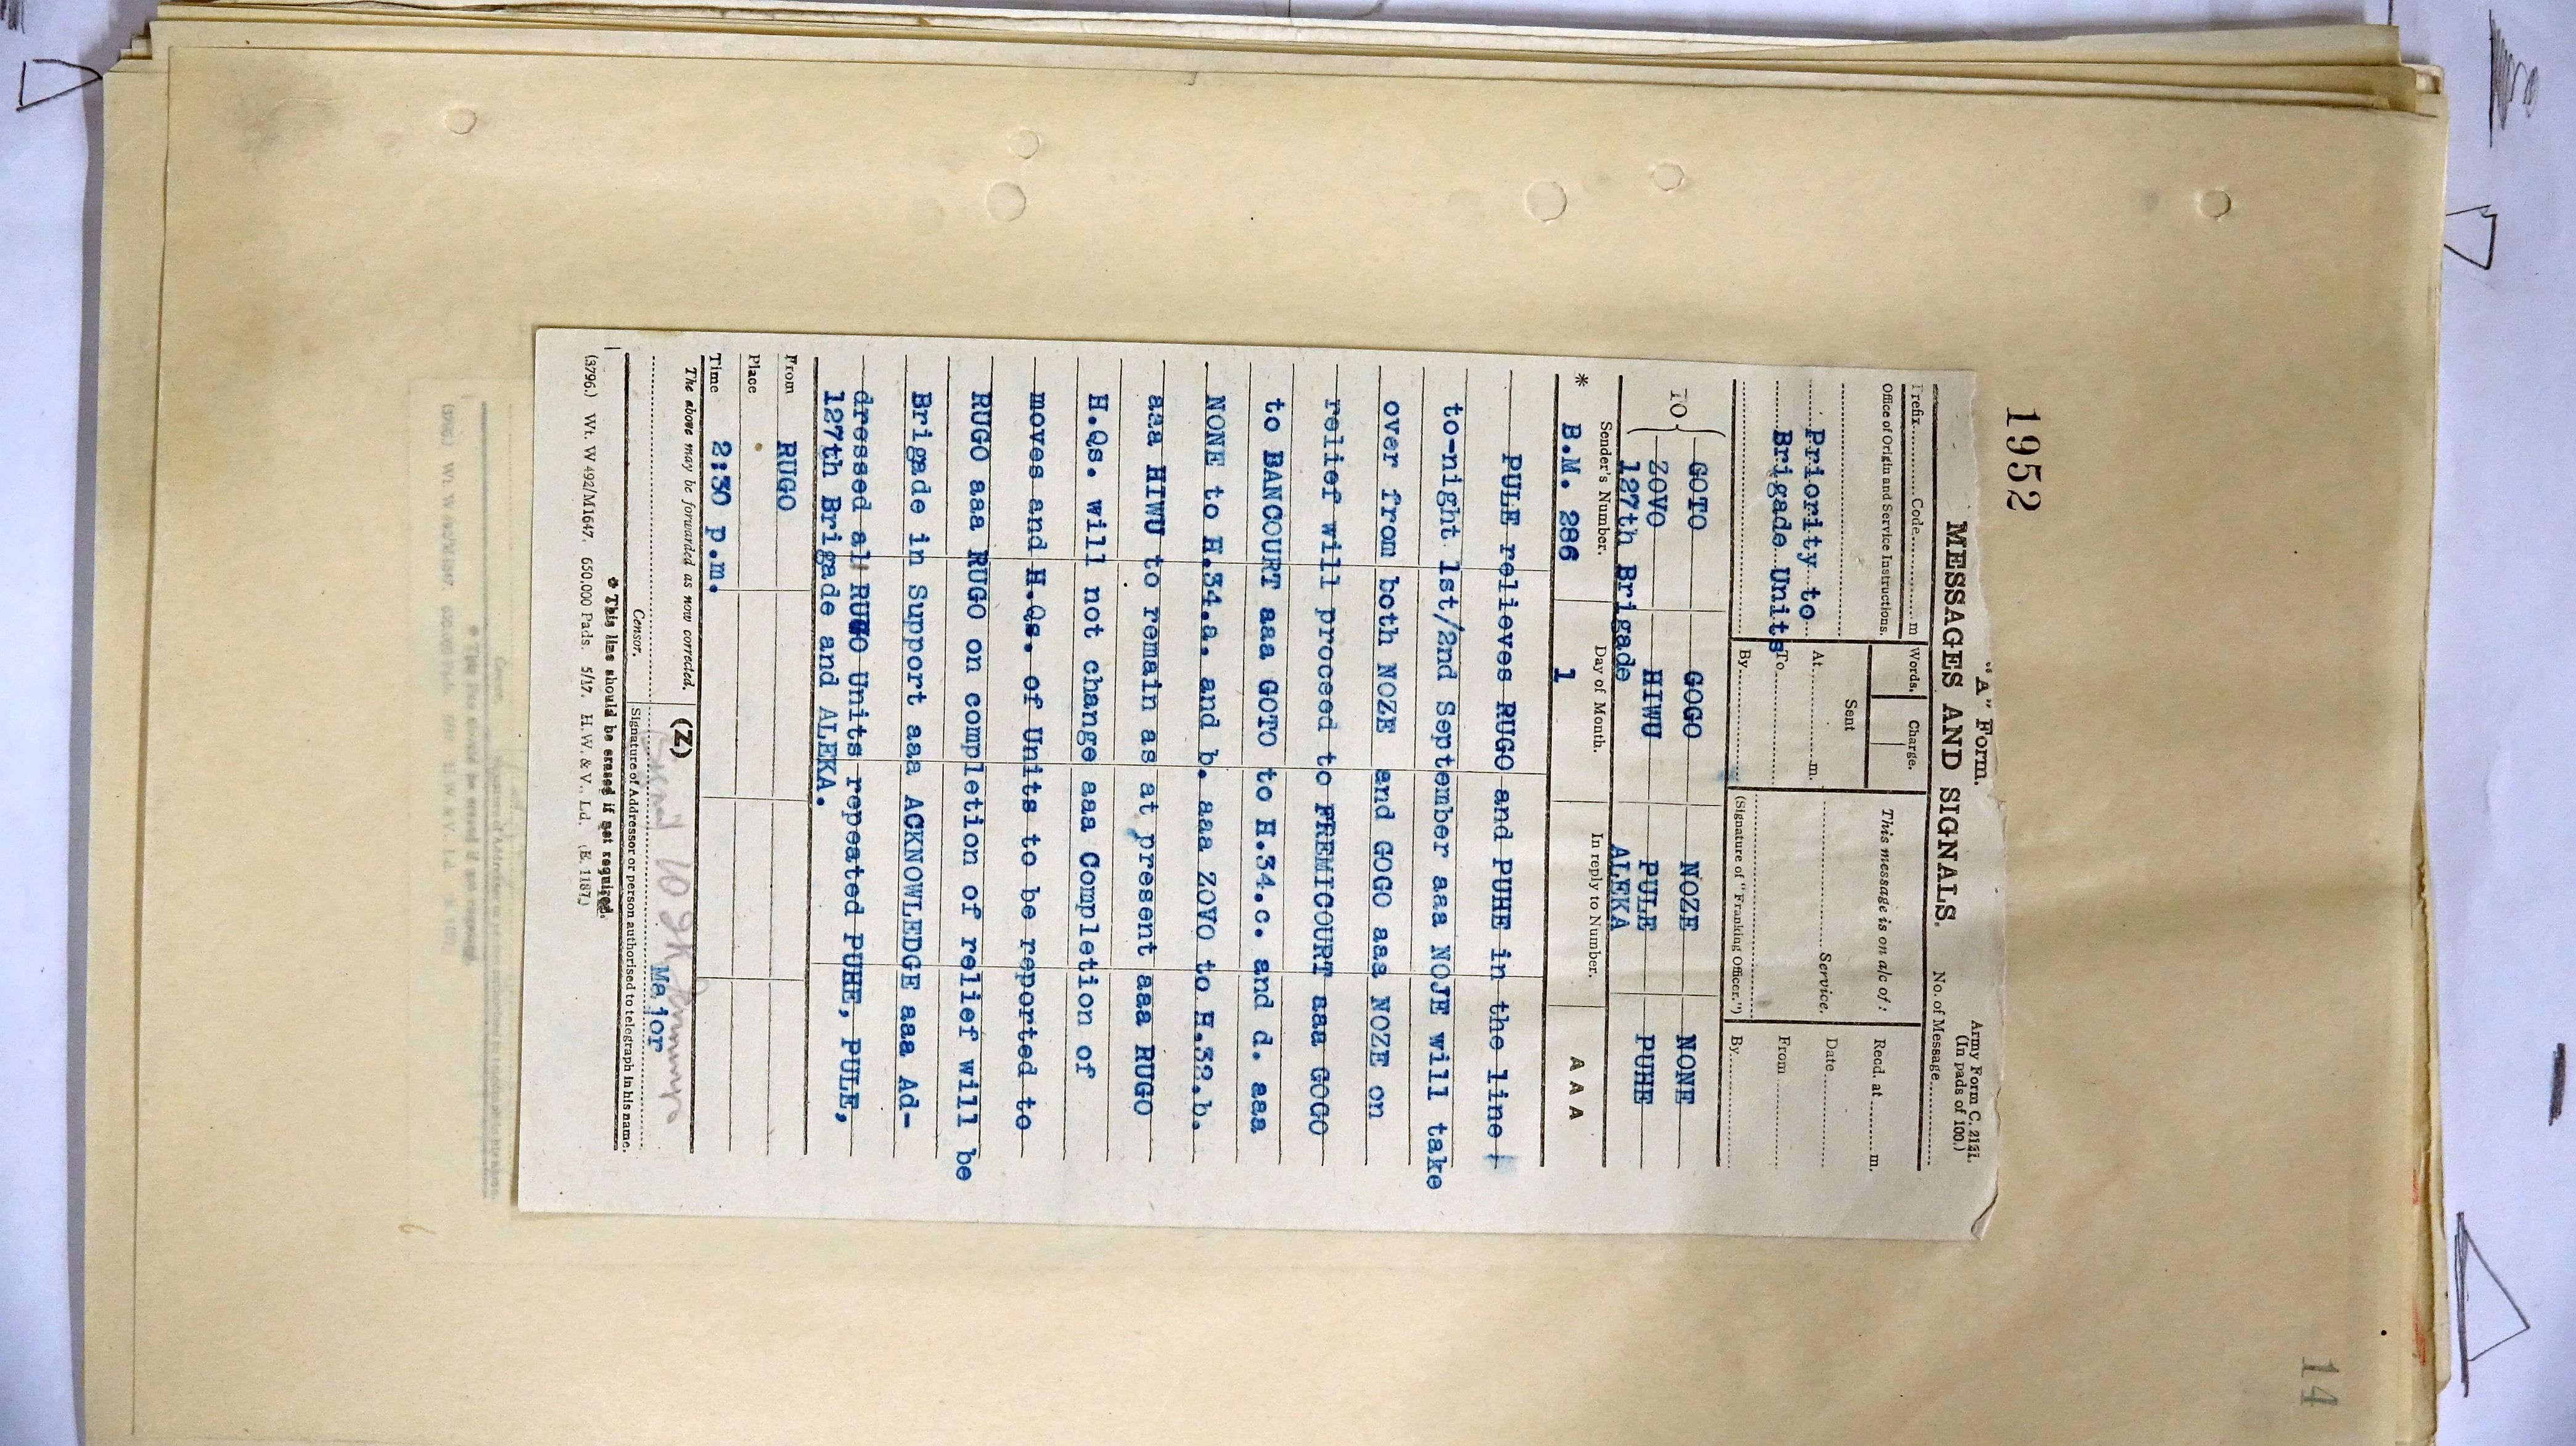 1952
"A" Form.
MESSAGES AND SIGNALS.
Army Form C. 2121.
(In pads of 100.)
No. of Message
Prefix Code m
Office of Origin and Service Instructions.
Priority to
Brigade Units
Words. Charge.
Sent
At m.
To
By
This message is on a/c of:
Service.
(Signature of "Franking Officer.")
Recd. at m.
Date
From
By
TO
GOTO GOGO NOZE NONE
ZOVO HIWU PULE PUHE
127th Brigade ALEKA
Sender's Number. Day of Month. In reply to Number. A A A
* B.M. 286 1
PULE relieves RUGO and PUHE in the line
to-night 1st/2nd September aaa NOJE will take
over from both NOZE and GOGO aaa NOZE on
relief will proceed to FREMICOURT aaa GOGO
to BANCOURT aaa GOTO to H.34.c. and d. aaa
NONE to H.34.a. and b. aaa ZOVO to H.32.b.
aaa HIWU to remain as at present aaa RUGO
H.Qs. will not change aaa Completion of
moves and H.Qs. of Units to be reported to
RUGO aaa RUGO on completion of relief will be
Brigade in Support aaa ACKNOWLEDGE aaa Ad-
dressed all RUGO Units repeated PUHE, PULE,
127th Brigade and ALEKA.
From RUGO
Place
Time 2:30 p.m.
The above may be forwarded as now corrected. (Z)
Major
Censor. Signature of Addressor or person authorised to telegraph in his name.
* This line should be erased if not required.
(3796.) Wt. W 492/M1647. 650,000 Pads. 5/17. H.W. & V., Ld. (E. 1187.)
14